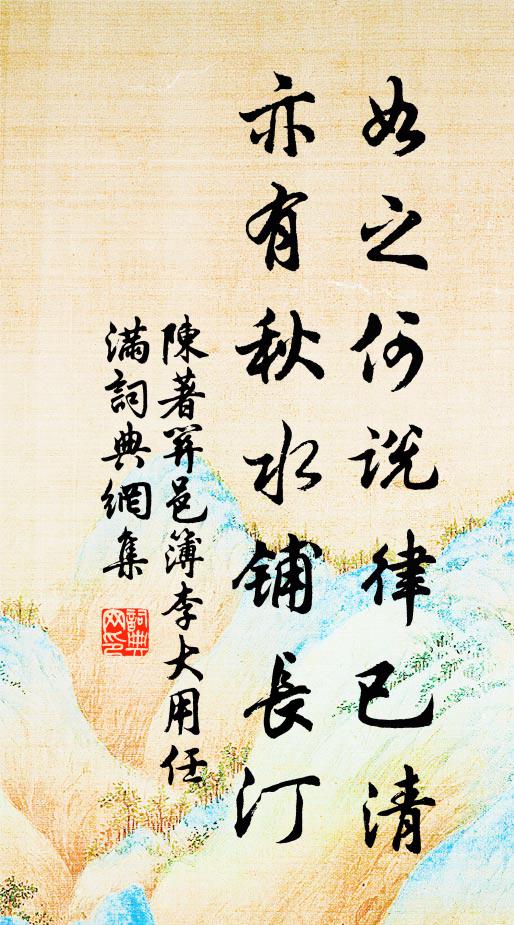 如之何說律已清
亦有秋水鋪長汀
陳著邑簿李大用任
滿詞典網集
詞典
网印